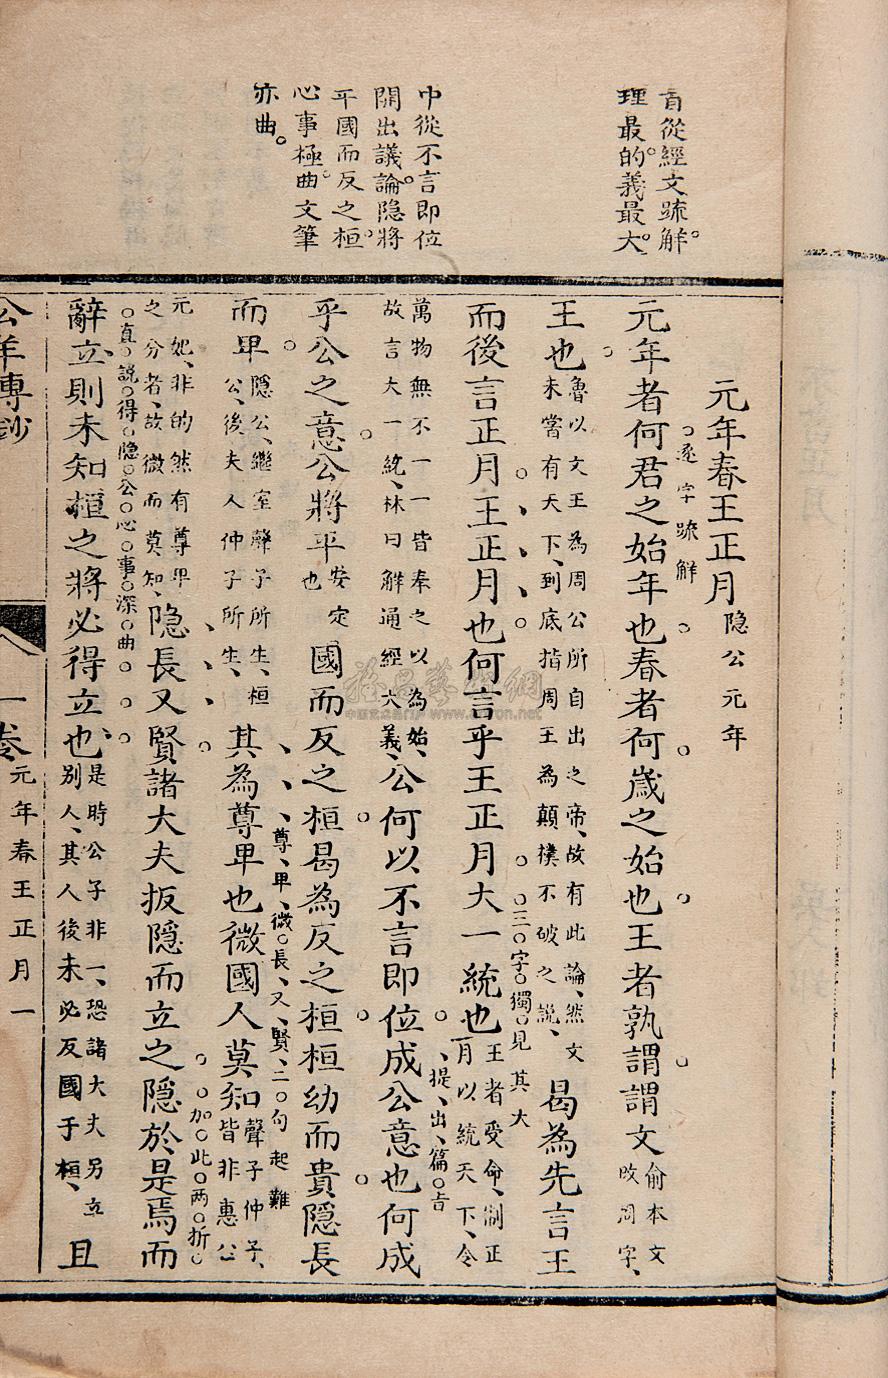 首從經文疏解
理最的義最大
中從不言即位
開出議論隐將
平國而反之桓
心事極曲文筆
亦曲
元年春王正月
隐公元年
逐字疏解
元年者何君之始年也春者何歲之始也王者孰謂謂文
俞本文
改周字
王也
魯以文王為周公所自出之帝故有此論然文
未嘗有天下到底指周王為顛撲不破之說
曷為先言王
三字獨見其大
而後言正月王正月也何言乎王正月大一統也
王者受命制正
月以統天下令
提出篇旨
萬物無不一一皆奉之以為始
故言大一統林曰解通經大義
公何以不言即位成公意也何成
乎公之意公將平
安定
也
國而反之桓曷為反之桓桓幼而貴隱長
尊卑微長又賢二句起難
而卑
隱公繼室聲子所生桓
公後夫人仲子所生
其為尊卑也微國人莫知
聲子仲子
皆非惠公
加此两折
元妃非的然有尊卑
之分者故微而莫知
隐長又賢諸大夫扳隱而立之隱於是焉而
直說得隐公心事深曲
辭立則未知桓之將必得立也
是時公子非一恐諸大夫另立
別人其人後未必反國于桓
且
公羊傳鈔
一卷
元年春王正月
一